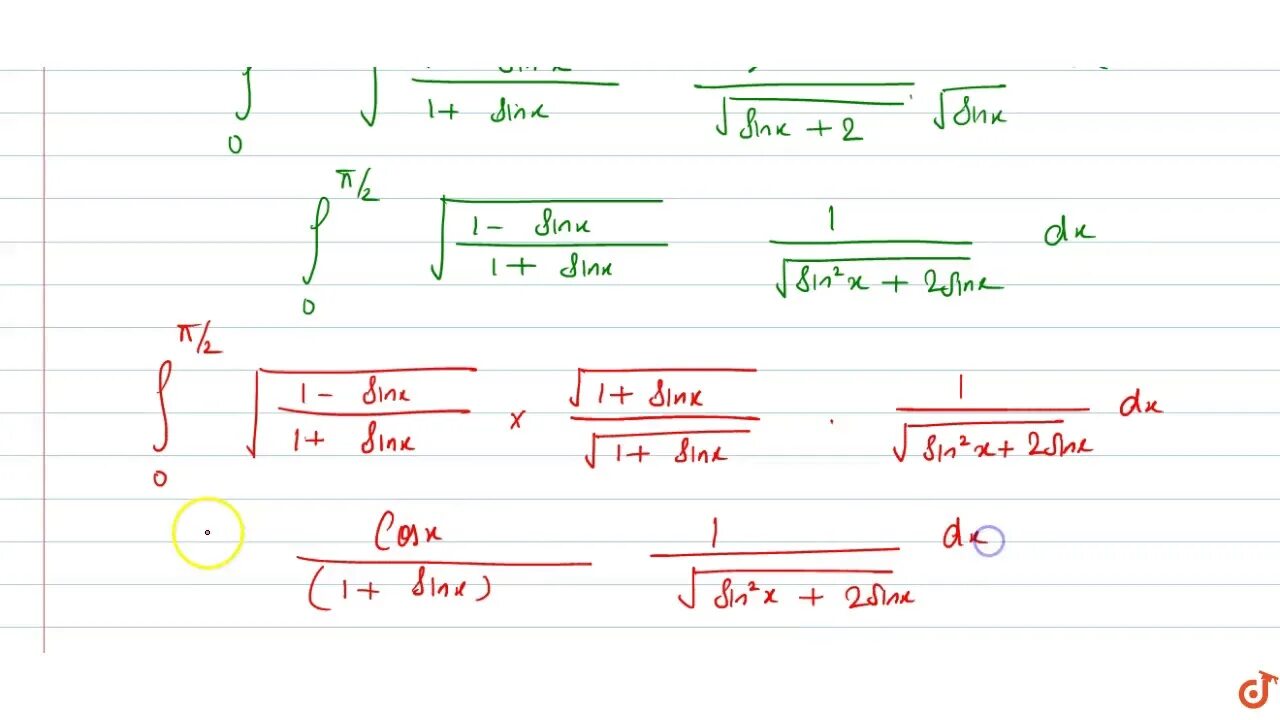 ∫ 0 √ 1+ sinx √sinx + 2 . √sinx
∫ 0 π/2 √(1 - sinx / 1 + sinx) 1 / √(sin²x + 2sinx) dx
∫ 0 π/2 √(1 - sinx / 1 + sinx) × √(1 + sinx) / √(1 + sinx) . 1 / √(sin²x + 2sinx) dx
Cosx / (1 + sinx) 1 / √(sin²x + 2sinx) dx